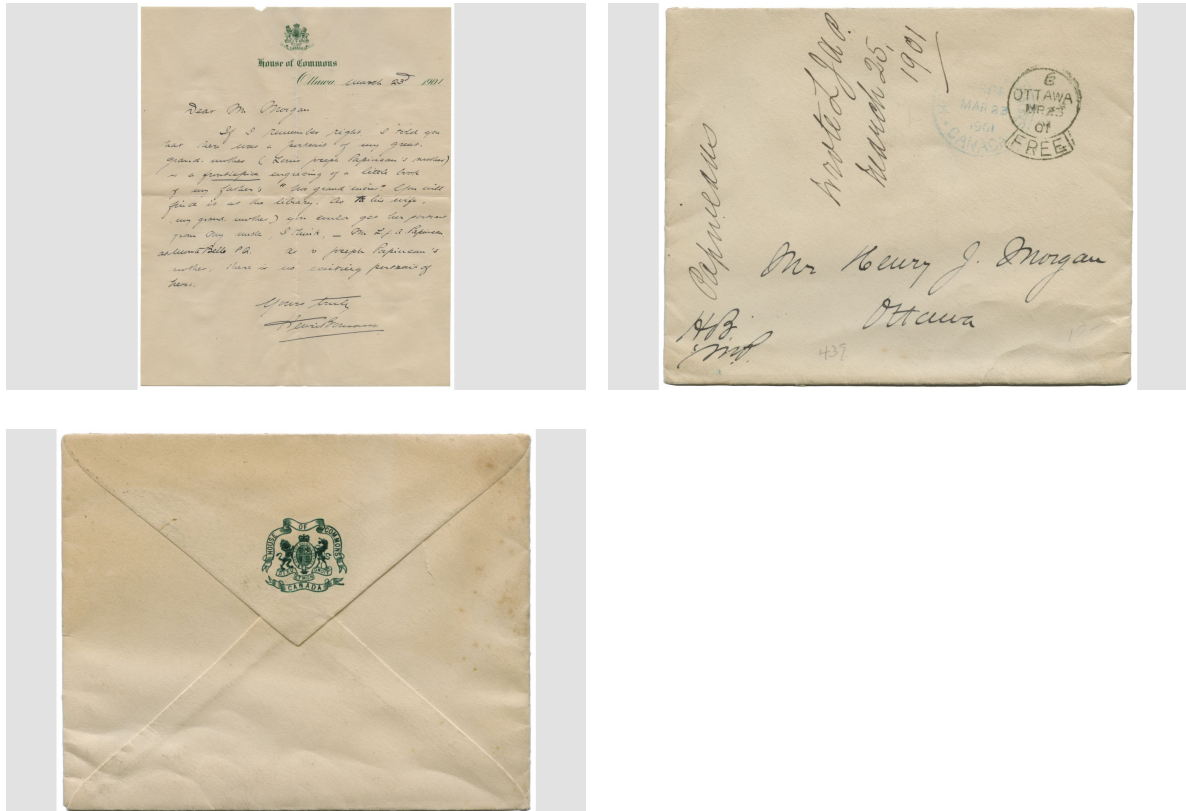 House of Commons
Ottawa March 23rd 1901
Dear Mr Morgan
If I remember right, I told you
that there was a portrait of my great
grand-mother (Louis Joseph Papineau's mother)
in a frontispice engraving of a little book
of my father's You will
find it at the library. As to his wife,
my grand mother) you could get her portrait
from my uncle, I think, — Mr L J A Papineau
at Monte Bello P.Q. As to Joseph Papineau's
mother, there is no existing portrait of
hers.
Yours truly
Henri Bourassa
Papineaus
wrote L.J.A.P.
March 25,
1901
MAR 23
1901
CANADA
6
OTTAWA
MR 23
01
FREE
Mr Henry J. Morgan
Ottawa
H.B.
M.P.
439
HOUSE OF COMMONS
CANADA